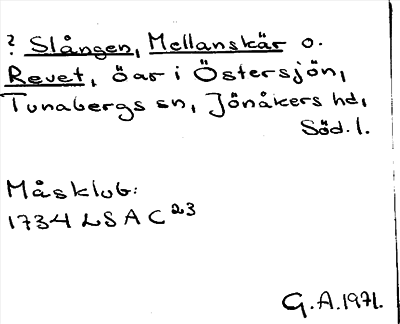 ? Slången, Mellanskär o.
Revet, öar i Östersjön,
Tunabergs sn, Jönåkers hd,
Söd. l.
Måsklub:
1734 LSA C 23
G.A. 1971.